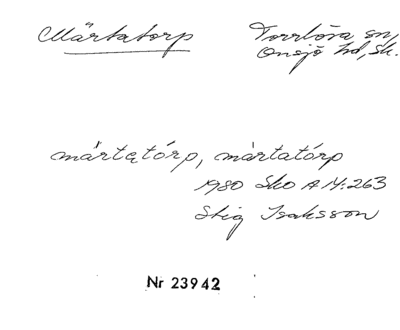 Märtatorp Torrlösa sn,
Onsjö hd, Sk.
mártatórp, màrtatórp
1980 Sko A 14:263
Stig Isaksson
Nr 23942